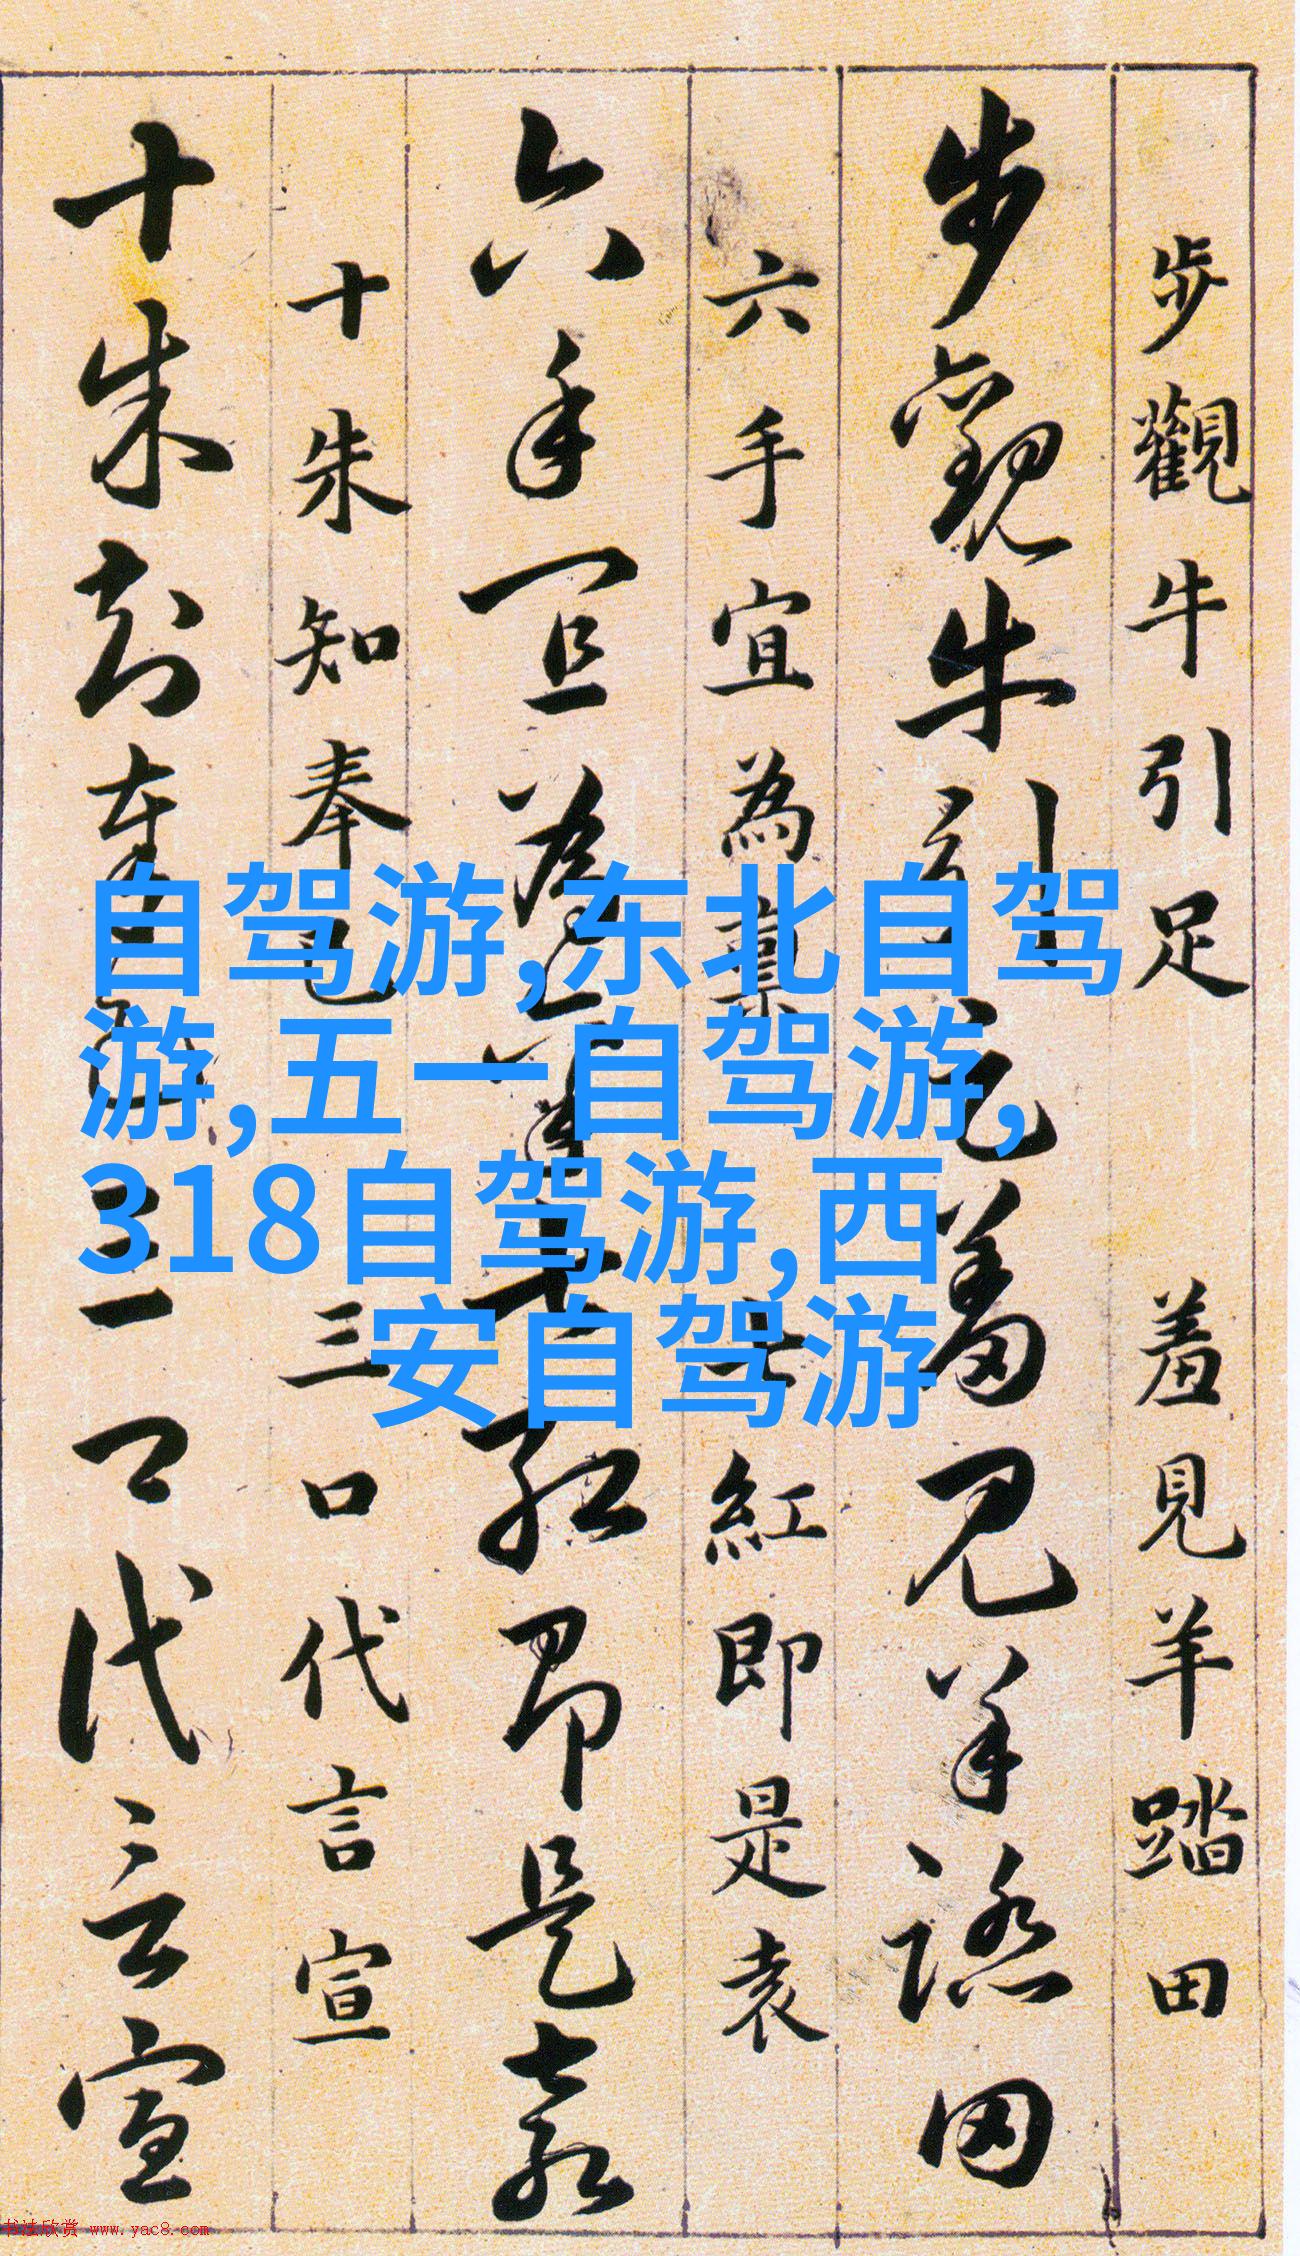 步觀牛引足 羞見羊踏田
步觀牛引足羞見羊踏田
六手宜為稟 七紅即是袁
六手宜為稟七紅即是袁
十朱知奉已 三口代言宣
十朱知奉已三口代言宣
自驾游,东北自驾
游,五一自驾游,
318自驾游,西
安自驾游
书法欣赏 www.yac8.com